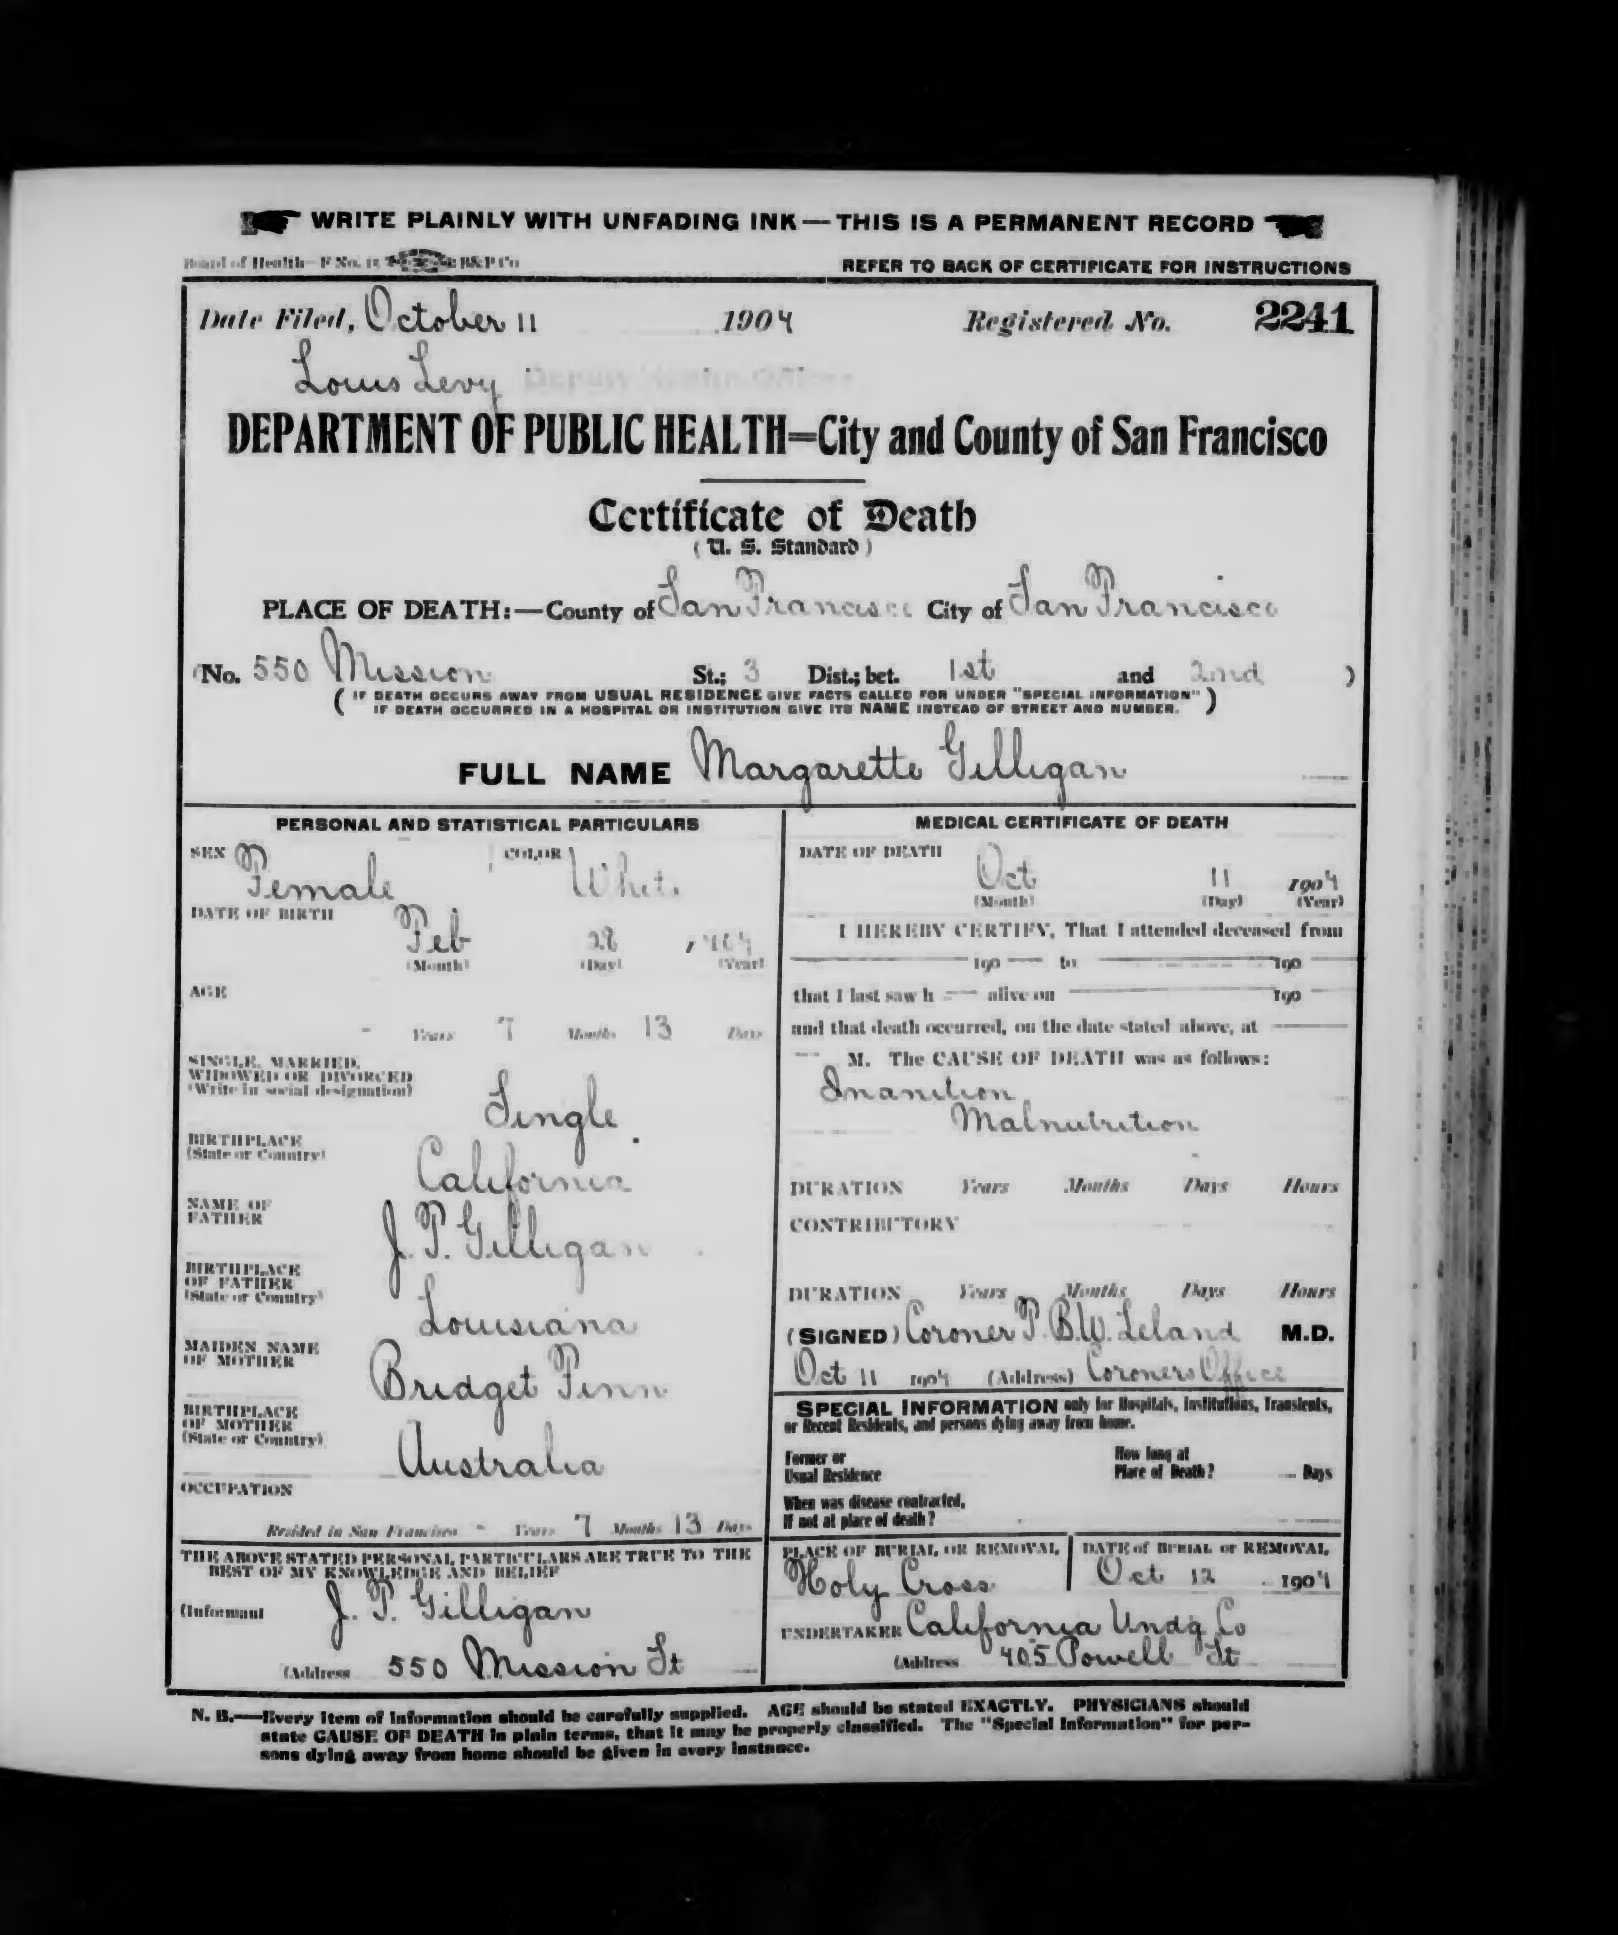 WRITE PLAINLY WITH UNFADING INK—THIS IS A PERMANENT RECORD
Board of Health—F No. 15 B&P Co
REFER TO BACK OF CERTIFICATE FOR INSTRUCTIONS
Date Filed, October 11 1904 Registered No. 2241
Louis Levy Deputy Health Officer
DEPARTMENT OF PUBLIC HEALTH=City and County of San Francisco
Certificate of Death
( U. S. Standard )
PLACE OF DEATH:—County of San Francisco City of San Francisco
(No. 550 Mission St.; 3 Dist.; bet. 1st and 2nd )
( IF DEATH OCCURS AWAY FROM USUAL RESIDENCE GIVE FACTS CALLED FOR UNDER "SPECIAL INFORMATION"
IF DEATH OCCURRED IN A HOSPITAL OR INSTITUTION GIVE ITS NAME INSTEAD OF STREET AND NUMBER. )
FULL NAME Margarette Gilligan
PERSONAL AND STATISTICAL PARTICULARS
SEX Female COLOR White
DATE OF BIRTH
Feb 28 , 904
(Month) (Day) (Year)
AGE
- Years 7 Months 13 Days
SINGLE, MARRIED,
WIDOWED OR DIVORCED
(Write in social designation)
Single
BIRTHPLACE
(State or Country)
California
NAME OF
FATHER
J. P. Gilligan
BIRTHPLACE
OF FATHER
(State or Country)
Louisiana
MAIDEN NAME
OF MOTHER
Bridget Finn
BIRTHPLACE
OF MOTHER
(State or Country)
Australia
OCCUPATION
Resided in San Francisco - Years 7 Months 13 Days
THE ABOVE STATED PERSONAL PARTICULARS ARE TRUE TO THE
BEST OF MY KNOWLEDGE AND BELIEF
(Informant J. P. Gilligan
(Address 550 Mission St
MEDICAL CERTIFICATE OF DEATH
DATE OF DEATH
Oct 11 1904
(Month) (Day) (Year)
I HEREBY CERTIFY, That I attended deceased from
190 to 190
that I last saw h alive on 190
and that death occurred, on the date stated above, at
M. The CAUSE OF DEATH was as follows:
Inanition
Malnutrition
DURATION Years Months Days Hours
CONTRIBUTORY
DURATION Years Months Days Hours
(SIGNED) Coroner T. B. W. Leland M.D.
Oct 11 1904 (Address) Coroners Office
SPECIAL INFORMATION only for Hospitals, Institutions, Transients,
or Recent Residents, and persons dying away from home.
Former or
Usual Residence
How long at
Place of Death? Days
When was disease contracted,
If not at place of death?
PLACE OF BURIAL OR REMOVAL
Holy Cross
DATE of BURIAL or REMOVAL
Oct 12 1904
UNDERTAKER California Undg Co
(Address 405 Powell St
N. B.—Every item of information should be carefully supplied. AGE should be stated EXACTLY. PHYSICIANS should
state CAUSE OF DEATH in plain terms, that it may be properly classified. The "Special Information" for per-
sons dying away from home should be given in every instance.